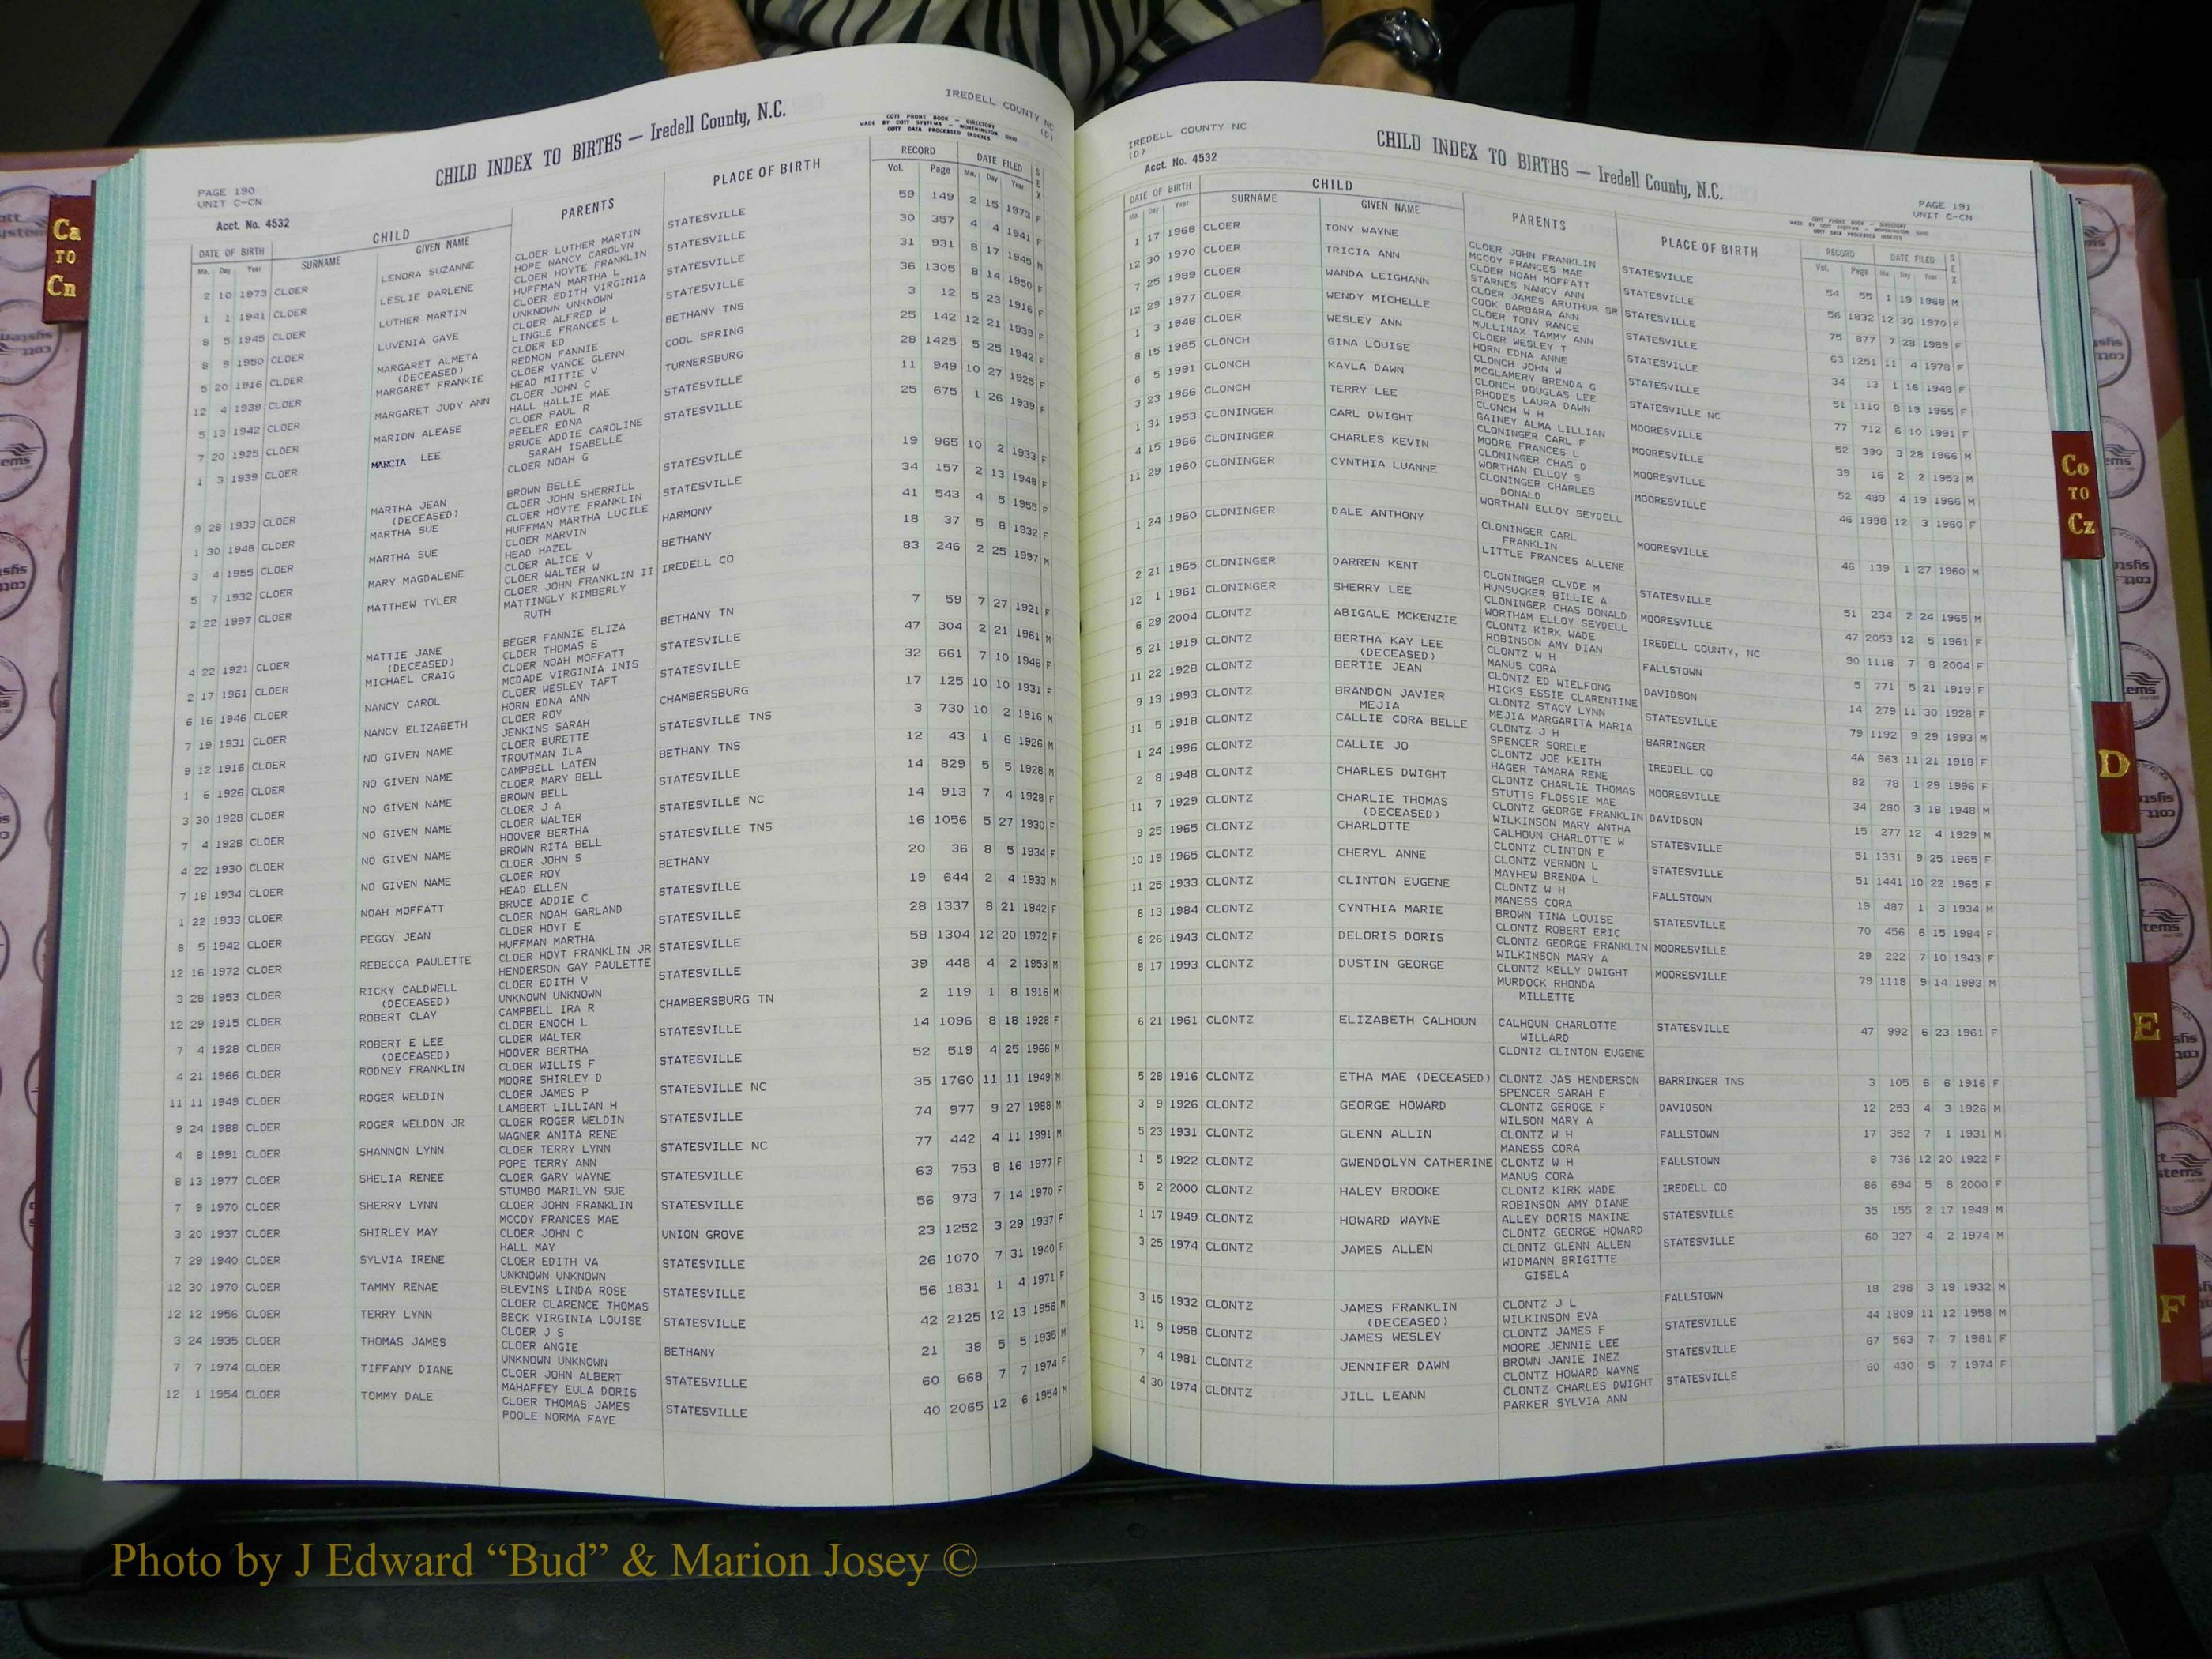 IREDELL COUNTY NC
(D)
CHILD INDEX TO BIRTHS — Iredell County, N.C.
COTT PHONE BOOK — DIRECTORY
MADE BY COTT SYSTEMS — WORTHINGTON OHIO
COTT DATA PROCESSED INDEXES
PAGE 190
UNIT C-CN
Acct. No. 4532
DATE OF BIRTH CHILD PARENTS PLACE OF BIRTH RECORD DATE FILED SEX
Mo. Day Year SURNAME GIVEN NAME Vol. Page Mo. Day Year
2 10 1973 CLOER LENORA SUZANNE CLOER LUTHER MARTIN STATESVILLE 59 149 2 15 1973 F
HOPE NANCY CAROLYN
1 1 1941 CLOER LESLIE DARLENE CLOER HOYTE FRANKLIN STATESVILLE 30 357 4 4 1941 F
HUFFMAN MARTHA L
8 5 1945 CLOER LUTHER MARTIN CLOER EDITH VIRGINIA STATESVILLE 31 931 8 17 1945 M
UNKNOWN UNKNOWN
8 9 1950 CLOER LUVENIA GAYE CLOER ALFRED W STATESVILLE 36 1305 8 14 1950 F
LINGLE FRANCES L
5 20 1916 CLOER MARGARET ALMETA CLOER ED BETHANY TNS 3 12 5 23 1916 F
(DECEASED) REDMON FANNIE
12 4 1939 CLOER MARGARET FRANKIE CLOER VANCE GLENN COOL SPRING 25 142 12 21 1939 F
HEAD MITTIE V
5 13 1942 CLOER MARGARET JUDY ANN CLOER JOHN C TURNERSBURG 28 1425 5 25 1942 F
HALL HALLIE MAE
7 20 1925 CLOER MARION ALEASE CLOER PAUL R STATESVILLE 11 949 10 27 1925 F
PEELER EDNA
1 3 1939 CLOER MARCIA LEE BRUCE ADDIE CAROLINE STATESVILLE 25 675 1 26 1939 F
SARAH ISABELLE
CLOER NOAH G
9 28 1933 CLOER MARTHA JEAN BROWN BELLE STATESVILLE 19 965 10 2 1933 F
(DECEASED) CLOER JOHN SHERRILL
1 30 1948 CLOER MARTHA SUE CLOER HOYTE FRANKLIN STATESVILLE 34 157 2 13 1948 F
HUFFMAN MARTHA LUCILE
3 4 1955 CLOER MARTHA SUE CLOER MARVIN HARMONY 41 543 4 5 1955 F
HEAD HAZEL
5 7 1932 CLOER MARY MAGDALENE CLOER ALICE V BETHANY 18 37 5 8 1932 F
CLOER WALTER W
2 22 1997 CLOER MATTHEW TYLER CLOER JOHN FRANKLIN II IREDELL CO 83 246 2 25 1997 M
MATTINGLY KIMBERLY
RUTH
4 22 1921 CLOER MATTIE JANE BEGER FANNIE ELIZA BETHANY TN 7 59 7 27 1921 F
(DECEASED) CLOER THOMAS E
2 17 1961 CLOER MICHAEL CRAIG CLOER NOAH MOFFATT STATESVILLE 47 304 2 21 1961 M
MCDADE VIRGINIA INIS
6 16 1946 CLOER NANCY CAROL CLOER WESLEY TAFT STATESVILLE 32 661 7 10 1946 F
HORN EDNA ANN
7 19 1931 CLOER NANCY ELIZABETH CLOER ROY CHAMBERSBURG 17 125 10 10 1931 F
JENKINS SARAH
9 12 1916 CLOER NO GIVEN NAME CLOER BURETTE STATESVILLE TNS 3 730 10 2 1916 M
TROUTMAN ILA
1 6 1926 CLOER NO GIVEN NAME CAMPBELL LATEN BETHANY TNS 12 43 1 6 1926 M
CLOER MARY BELL
3 30 1928 CLOER NO GIVEN NAME BROWN BELL STATESVILLE 14 829 5 5 1928 M
CLOER J A
7 4 1928 CLOER NO GIVEN NAME CLOER WALTER STATESVILLE NC 14 913 7 4 1928 F
HOOVER BERTHA
4 22 1930 CLOER NO GIVEN NAME BROWN RITA BELL STATESVILLE TNS 16 1056 5 27 1930 F
CLOER JOHN S
7 18 1934 CLOER NO GIVEN NAME CLOER ROY BETHANY 20 36 8 5 1934 F
HEAD ELLEN
1 22 1933 CLOER NOAH MOFFATT BRUCE ADDIE C STATESVILLE 19 644 2 4 1933 M
CLOER NOAH GARLAND
8 5 1942 CLOER PEGGY JEAN CLOER HOYT E STATESVILLE 28 1337 8 21 1942 F
HUFFMAN MARTHA
12 16 1972 CLOER REBECCA PAULETTE CLOER HOYT FRANKLIN JR STATESVILLE 58 1304 12 20 1972 F
HENDERSON GAY PAULETTE
3 28 1953 CLOER RICKY CALDWELL CLOER EDITH V STATESVILLE 39 448 4 2 1953 M
(DECEASED) UNKNOWN UNKNOWN
12 29 1915 CLOER ROBERT CLAY CAMPBELL IRA R CHAMBERSBURG TN 2 119 1 8 1916 M
CLOER ENOCH L
7 4 1928 CLOER ROBERT E LEE CLOER WALTER STATESVILLE 14 1096 8 18 1928 F
(DECEASED) HOOVER BERTHA
4 21 1966 CLOER RODNEY FRANKLIN CLOER WILLIS F STATESVILLE 52 519 4 25 1966 M
MOORE SHIRLEY D
11 11 1949 CLOER ROGER WELDIN CLOER JAMES P STATESVILLE NC 35 1760 11 11 1949 M
LAMBERT LILLIAN H
9 24 1988 CLOER ROGER WELDON JR CLOER ROGER WELDIN STATESVILLE 74 977 9 27 1988 M
WAGNER ANITA RENE
4 8 1991 CLOER SHANNON LYNN CLOER TERRY LYNN STATESVILLE NC 77 442 4 11 1991 M
POPE TERRY ANN
8 13 1977 CLOER SHELIA RENEE CLOER GARY WAYNE STATESVILLE 63 753 8 16 1977 F
STUMBO MARILYN SUE
7 9 1970 CLOER SHERRY LYNN CLOER JOHN FRANKLIN STATESVILLE 56 973 7 14 1970 F
MCCOY FRANCES MAE
3 20 1937 CLOER SHIRLEY MAY CLOER JOHN C UNION GROVE 23 1252 3 29 1937 F
HALL MAY
7 29 1940 CLOER SYLVIA IRENE CLOER EDITH VA STATESVILLE 26 1070 7 31 1940 F
UNKNOWN UNKNOWN
12 30 1970 CLOER TAMMY RENAE BLEVINS LINDA ROSE STATESVILLE 56 1831 1 4 1971 F
CLOER CLARENCE THOMAS
12 12 1956 CLOER TERRY LYNN BECK VIRGINIA LOUISE STATESVILLE 42 2125 12 13 1956 M
CLOER J S
3 24 1935 CLOER THOMAS JAMES CLOER ANGIE BETHANY 21 38 5 5 1935 M
UNKNOWN UNKNOWN
7 7 1974 CLOER TIFFANY DIANE CLOER JOHN ALBERT STATESVILLE 60 668 7 7 1974 F
MAHAFFEY EULA DORIS
12 1 1954 CLOER TOMMY DALE CLOER THOMAS JAMES STATESVILLE 40 2065 12 6 1954 M
POOLE NORMA FAYE
IREDELL COUNTY NC
(D)
Acct. No. 4532
CHILD INDEX TO BIRTHS — Iredell County, N.C.
PAGE 191
UNIT C-CN
COTT PHONE BOOK — DIRECTORY
MADE BY COTT SYSTEMS — WORTHINGTON OHIO
COTT DATA PROCESSED INDEXES
DATE OF BIRTH CHILD PARENTS PLACE OF BIRTH RECORD DATE FILED SEX
Mo. Day Year SURNAME GIVEN NAME Vol. Page Mo. Day Year
1 17 1968 CLOER TONY WAYNE CLOER JOHN FRANKLIN STATESVILLE 54 55 1 19 1968 M
MCCOY FRANCES MAE
12 30 1970 CLOER TRICIA ANN CLOER NOAH MOFFATT STATESVILLE 56 1832 12 30 1970 F
STARNES NANCY ANN
7 25 1989 CLOER WANDA LEIGHANN CLOER JAMES ARUTHUR SR STATESVILLE 75 877 7 28 1989 F
COOK BARBARA ANN
12 29 1977 CLOER WENDY MICHELLE CLOER TONY RANCE STATESVILLE 63 1251 11 4 1978 F
MULLINAX TAMMY ANN
1 3 1948 CLOER WESLEY ANN CLOER WESLEY T STATESVILLE 34 13 1 16 1948 F
HORN EDNA ANNE
8 15 1965 CLONCH GINA LOUISE CLONCH JOHN W STATESVILLE 51 1110 8 19 1965 F
MCGLAMERY BRENDA G
6 5 1991 CLONCH KAYLA DAWN CLONCH DOUGLAS LEE STATESVILLE NC 77 712 6 10 1991 F
RHODES LAURA DAWN
3 23 1966 CLONCH TERRY LEE CLONCH W H MOORESVILLE 52 390 3 28 1966 M
GAINEY ALMA LILLIAN
1 31 1953 CLONINGER CARL DWIGHT CLONINGER CARL F MOORESVILLE 39 16 2 2 1953 M
MOORE FRANCES L
4 15 1966 CLONINGER CHARLES KEVIN CLONINGER CHAS D MOORESVILLE 52 489 4 19 1966 M
WORTHAN ELLOY S
11 29 1960 CLONINGER CYNTHIA LUANNE CLONINGER CHARLES MOORESVILLE 46 1998 12 3 1960 F
DONALD
WORTHAN ELLOY SEYDELL
1 24 1960 CLONINGER DALE ANTHONY CLONINGER CARL MOORESVILLE 46 139 1 27 1960 M
FRANKLIN
LITTLE FRANCES ALLENE
2 21 1965 CLONINGER DARREN KENT CLONINGER CLYDE M STATESVILLE 51 234 2 24 1965 M
HUNSUCKER BILLIE A
12 1 1961 CLONINGER SHERRY LEE CLONINGER CHAS DONALD MOORESVILLE 47 2053 12 5 1961 F
WORTHAM ELLOY SEYDELL
6 29 2004 CLONTZ ABIGALE MCKENZIE CLONTZ KIRK WADE IREDELL COUNTY, NC 90 1118 7 8 2004 F
ROBINSON AMY DIAN
5 21 1919 CLONTZ BERTHA KAY LEE CLONTZ W H FALLSTOWN 5 771 5 21 1919 F
(DECEASED) MANUS CORA
11 22 1928 CLONTZ BERTIE JEAN CLONTZ ED WIELFONG DAVIDSON 14 279 11 30 1928 F
HICKS ESSIE CLARENTINE
9 13 1993 CLONTZ BRANDON JAVIER CLONTZ STACY LYNN STATESVILLE 79 1192 9 29 1993 M
MEJIA MEJIA MARGARITA MARIA
11 5 1918 CLONTZ CALLIE CORA BELLE CLONTZ J H BARRINGER 4A 963 11 21 1918 F
SPENCER SORELE
1 24 1996 CLONTZ CALLIE JO CLONTZ JOE KEITH IREDELL CO 82 78 1 29 1996 F
HAGER TAMARA RENE
2 8 1948 CLONTZ CHARLES DWIGHT CLONTZ CHARLIE THOMAS MOORESVILLE 34 280 3 18 1948 M
STUTTS FLOSSIE MAE
11 7 1929 CLONTZ CHARLIE THOMAS CLONTZ GEORGE FRANKLIN DAVIDSON 15 277 12 4 1929 M
(DECEASED) WILKINSON MARY ANTHA
9 25 1965 CLONTZ CHARLOTTE CALHOUN CHARLOTTE W STATESVILLE 51 1331 9 25 1965 F
CLONTZ CLINTON E
10 19 1965 CLONTZ CHERYL ANNE CLONTZ VERNON L STATESVILLE 51 1441 10 22 1965 F
MAYHEW BRENDA L
11 25 1933 CLONTZ CLINTON EUGENE CLONTZ W H FALLSTOWN 19 487 1 3 1934 M
MANESS CORA
6 13 1984 CLONTZ CYNTHIA MARIE BROWN TINA LOUISE STATESVILLE 70 456 6 15 1984 F
CLONTZ ROBERT ERIC
6 26 1943 CLONTZ DELORIS DORIS CLONTZ GEORGE FRANKLIN MOORESVILLE 29 222 7 10 1943 F
WILKINSON MARY A
8 17 1993 CLONTZ DUSTIN GEORGE CLONTZ KELLY DWIGHT MOORESVILLE 79 1118 9 14 1993 M
MURDOCK RHONDA
MILLETTE
6 21 1961 CLONTZ ELIZABETH CALHOUN CALHOUN CHARLOTTE STATESVILLE 47 992 6 23 1961 F
WILLARD
CLONTZ CLINTON EUGENE
5 28 1916 CLONTZ ETHA MAE (DECEASED) CLONTZ JAS HENDERSON BARRINGER TNS 3 105 6 6 1916 F
SPENCER SARAH E
3 9 1926 CLONTZ GEORGE HOWARD CLONTZ GEROGE F DAVIDSON 12 253 4 3 1926 M
WILSON MARY A
5 23 1931 CLONTZ GLENN ALLIN CLONTZ W H FALLSTOWN 17 352 7 1 1931 M
MANESS CORA
1 5 1922 CLONTZ GWENDOLYN CATHERINE CLONTZ W H FALLSTOWN 8 736 12 20 1922 F
MANUS CORA
5 2 2000 CLONTZ HALEY BROOKE CLONTZ KIRK WADE IREDELL CO 86 694 5 8 2000 F
ROBINSON AMY DIANE
1 17 1949 CLONTZ HOWARD WAYNE ALLEY DORIS MAXINE STATESVILLE 35 155 2 17 1949 M
CLONTZ GEORGE HOWARD
3 25 1974 CLONTZ JAMES ALLEN CLONTZ GLENN ALLEN STATESVILLE 60 327 4 2 1974 M
WIDMANN BRIGITTE
GISELA
3 15 1932 CLONTZ JAMES FRANKLIN CLONTZ J L FALLSTOWN 18 298 3 19 1932 M
(DECEASED) WILKINSON EVA
11 9 1958 CLONTZ JAMES WESLEY CLONTZ JAMES F STATESVILLE 44 1809 11 12 1958 M
MOORE JENNIE LEE
7 4 1981 CLONTZ JENNIFER DAWN BROWN JANIE INEZ STATESVILLE 67 563 7 7 1981 F
CLONTZ HOWARD WAYNE
4 30 1974 CLONTZ JILL LEANN CLONTZ CHARLES DWIGHT STATESVILLE 60 430 5 7 1974 F
PARKER SYLVIA ANN
Ca
TO
Cn
Co
TO
Cz
D
E
F
Photo by J Edward “Bud” & Marion Josey ©